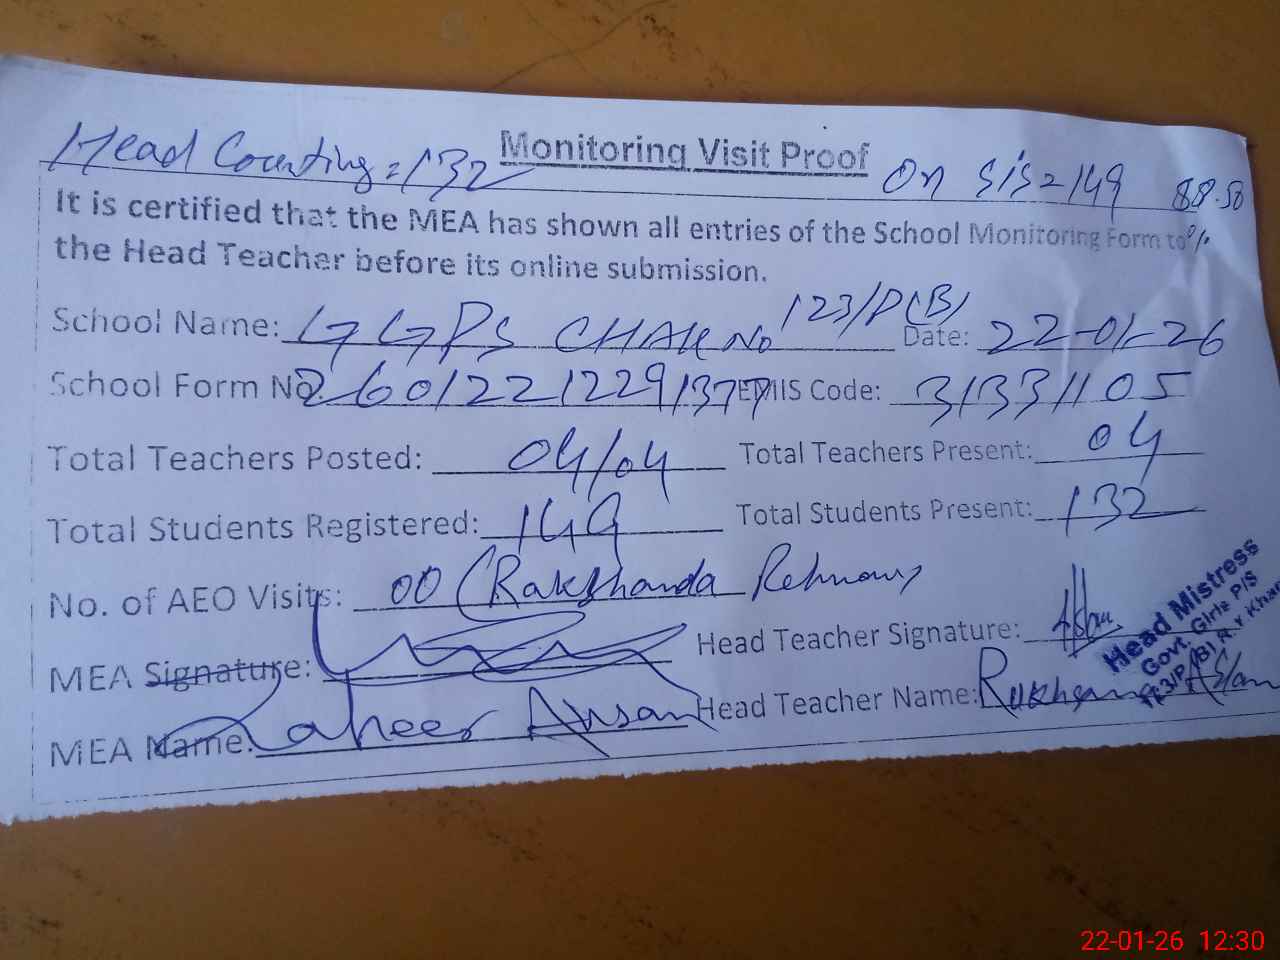 Head Counting = 132 Monitoring Visit Proof On SIS = 149 88.58 %
It is certified that the MEA has shown all entries of the School Monitoring Form to
the Head Teacher before its online submission.
School Name: GGPS CHAK No 123/P(B) Date: 22-01-26
School Form No. 2601221229137 EMIS Code: 31331105
Total Teachers Posted: 04/04 Total Teachers Present: 04
Total Students Registered: 149 Total Students Present: 132
No. of AEO Visits: 00 (Rakshanda Rehman)
MEA Signature: Head Teacher Signature:
MEA Name: Zaheer Head Teacher Name: Aslam
Head Mistress
Govt. Girls P/S
22-01-26 12:30